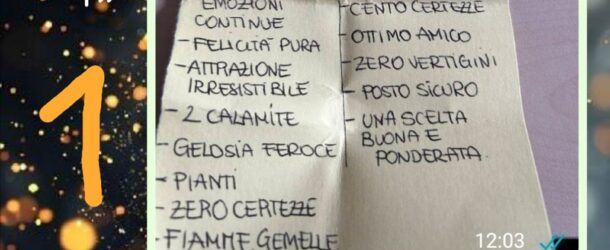 EMOZIONI
CONTINUE
- FELICITÀ PURA
- ATTRAZIONE
IRRESISTIBILE
- 2 CALAMITE
- GELOSIA FEROCE
- PIANTI
- ZERO CERTEZZE
- FIAMME GEMELLE
- CENTO CERTEZZE
- OTTIMO AMICO
- ZERO VERTIGINI
- POSTO SICURO
- UNA SCELTA
BUONA E
PONDERATA
1
12:03